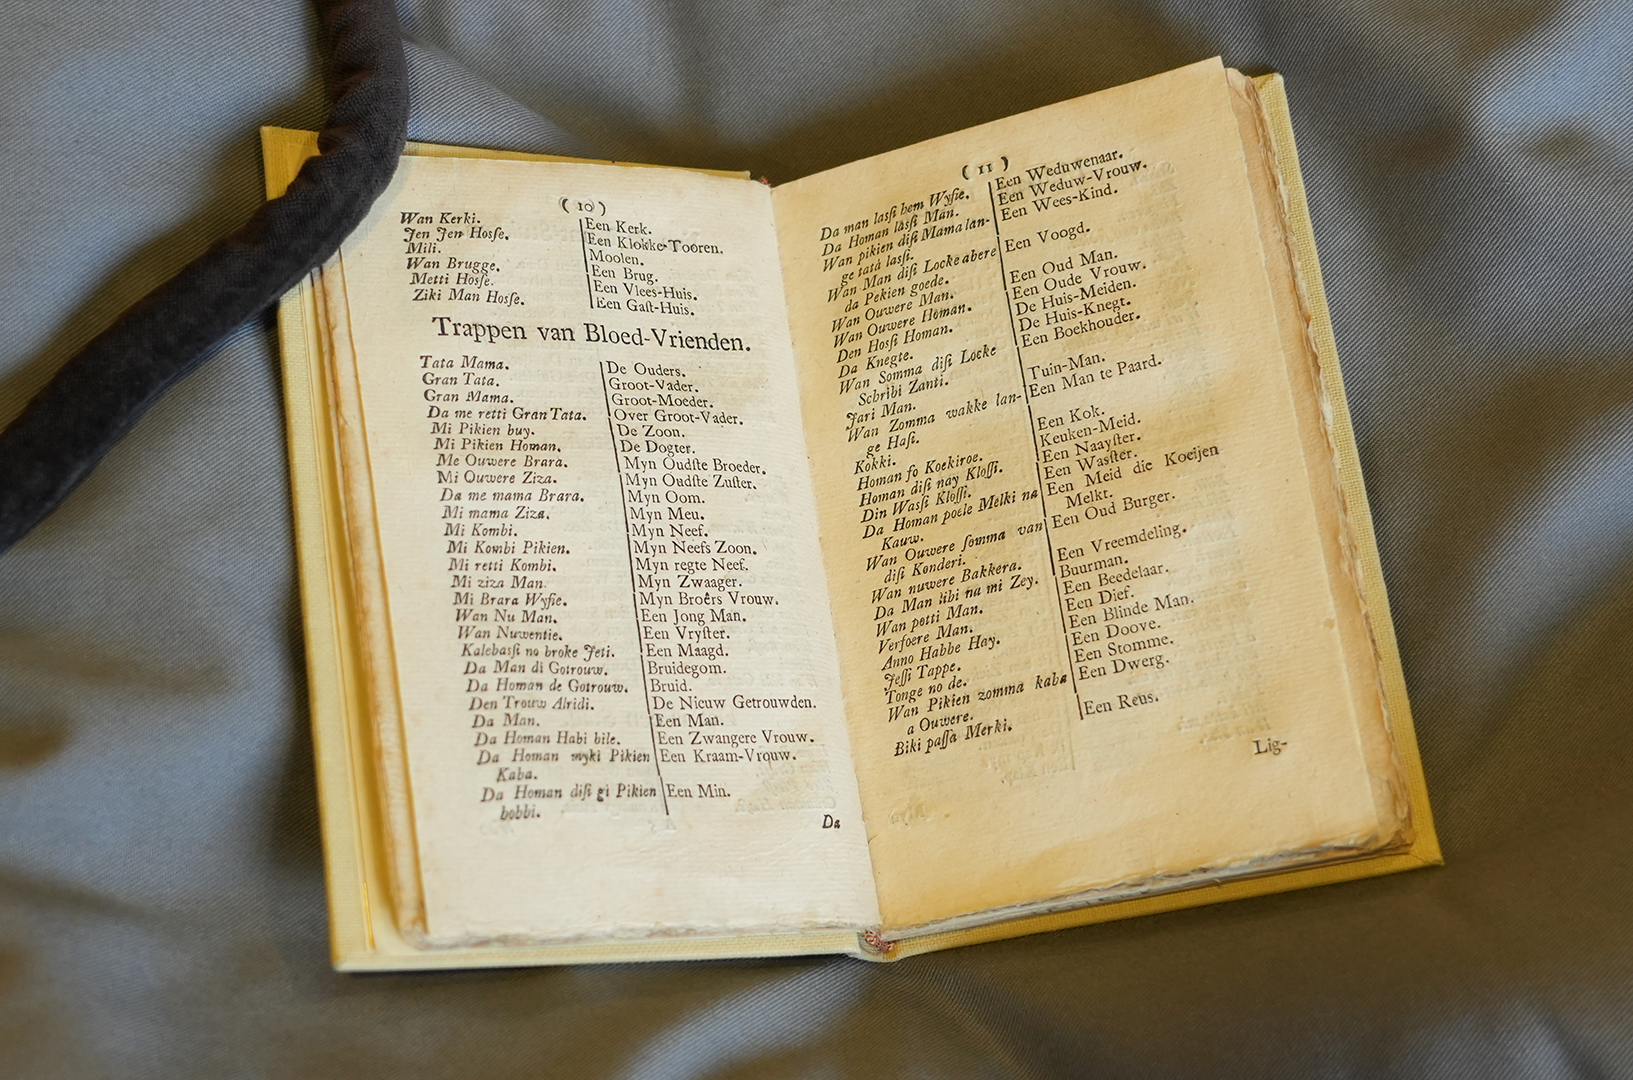 ( 10 )
Wan Kerki. Een Kerk.
Jen Jen Hosſe. Een Klokke-Tooren.
Mili. Moolen.
Wan Brugge. Een Brug.
Metti Hosſe. Een Vlees-Huis.
Ziki Man Hosſe. Een Gaſt-Huis.
Trappen van Bloed-Vrienden.
Tata Mama. De Ouders.
Gran Tata. Groot-Vader.
Gran Mama. Groot-Moeder.
Da me retti Gran Tata. Over Groot-Vader.
Mi Pikien buy. De Zoon.
Mi Pikien Homan. De Dogter.
Me Ouwere Brara. Myn Oudſte Broeder.
Mi Ouwere Ziza. Myn Oudſte Zuſter.
Da me mama Brara. Myn Oom.
Mi mama Ziza. Myn Meu.
Mi Kombi. Myn Neef.
Mi Kombi Pikien. Myn Neefs Zoon.
Mi retti Kombi. Myn regte Neef.
Mi ziza Man. Myn Zwaager.
Mi Brara Wyfie. Myn Broêrs Vrouw.
Wan Nu Man. Een Jong Man.
Wan Nuwentie. Een Vryſter.
Kalebasſi no broke Jeti. Een Maagd.
Da Man di Gotrouw. Bruidegom.
Da Homan de Gotrouw. Bruid.
Den Trouw Alridi. De Nieuw Getrouwden.
Da Man. Een Man.
Da Homan Habi bile. Een Zwangere Vrouw.
Da Homan myki Pikien Een Kraam-Vrouw.
Kaba.
Da Homan diſi gi Pikien Een Min.
bobbi.
Da
( 11 )
Da man lasſi hem Wyfie. Een Weduwenaar.
Da Homan lasſi Man. Een Weduw-Vrouw.
Wan pikien diſi Mama lan- Een Wees-Kind.
ge tata lasſi.
Wan Man diſi Locke abere Een Voogd.
da Pekien goede.
Wan Ouwere Man. Een Oud Man.
Wan Ouwere Homan. Een Oude Vrouw.
Den Hosſi Homan. De Huis-Meiden.
Da Knegte. De Huis-Knegt.
Wan Somma diſi Locke Een Boekhouder.
Schribi Zanti.
Jari Man. Tuin-Man.
Wan Zomma wakke lan- Een Man te Paard.
ge Haſi.
Kokki. Een Kok.
Homan fo Koekiroe. Keuken-Meid.
Homan diſi nay Klosſi. Een Naayſter.
Din Wasſi Klosſi. Een Wasſter.
Da Homan poele Melki na Een Meid die Koeijen
Kauw. Melkt.
Wan Ouwere ſomma van Een Oud Burger.
diſi Konderi.
Wan nuwere Bakkera. Een Vreemdeling.
Da Man libi na mi Zey. Buurman.
Wan potti Man. Een Beedelaar.
Verfoere Man. Een Dief.
Anno Habbe Hay. Een Blinde Man.
Jesſi Tappe. Een Doove.
Tonge no de. Een Stomme.
Wan Pikien zomma kaba Een Dwerg.
a Ouwere.
Biki pasſa Merki. Een Reus.
Lig-